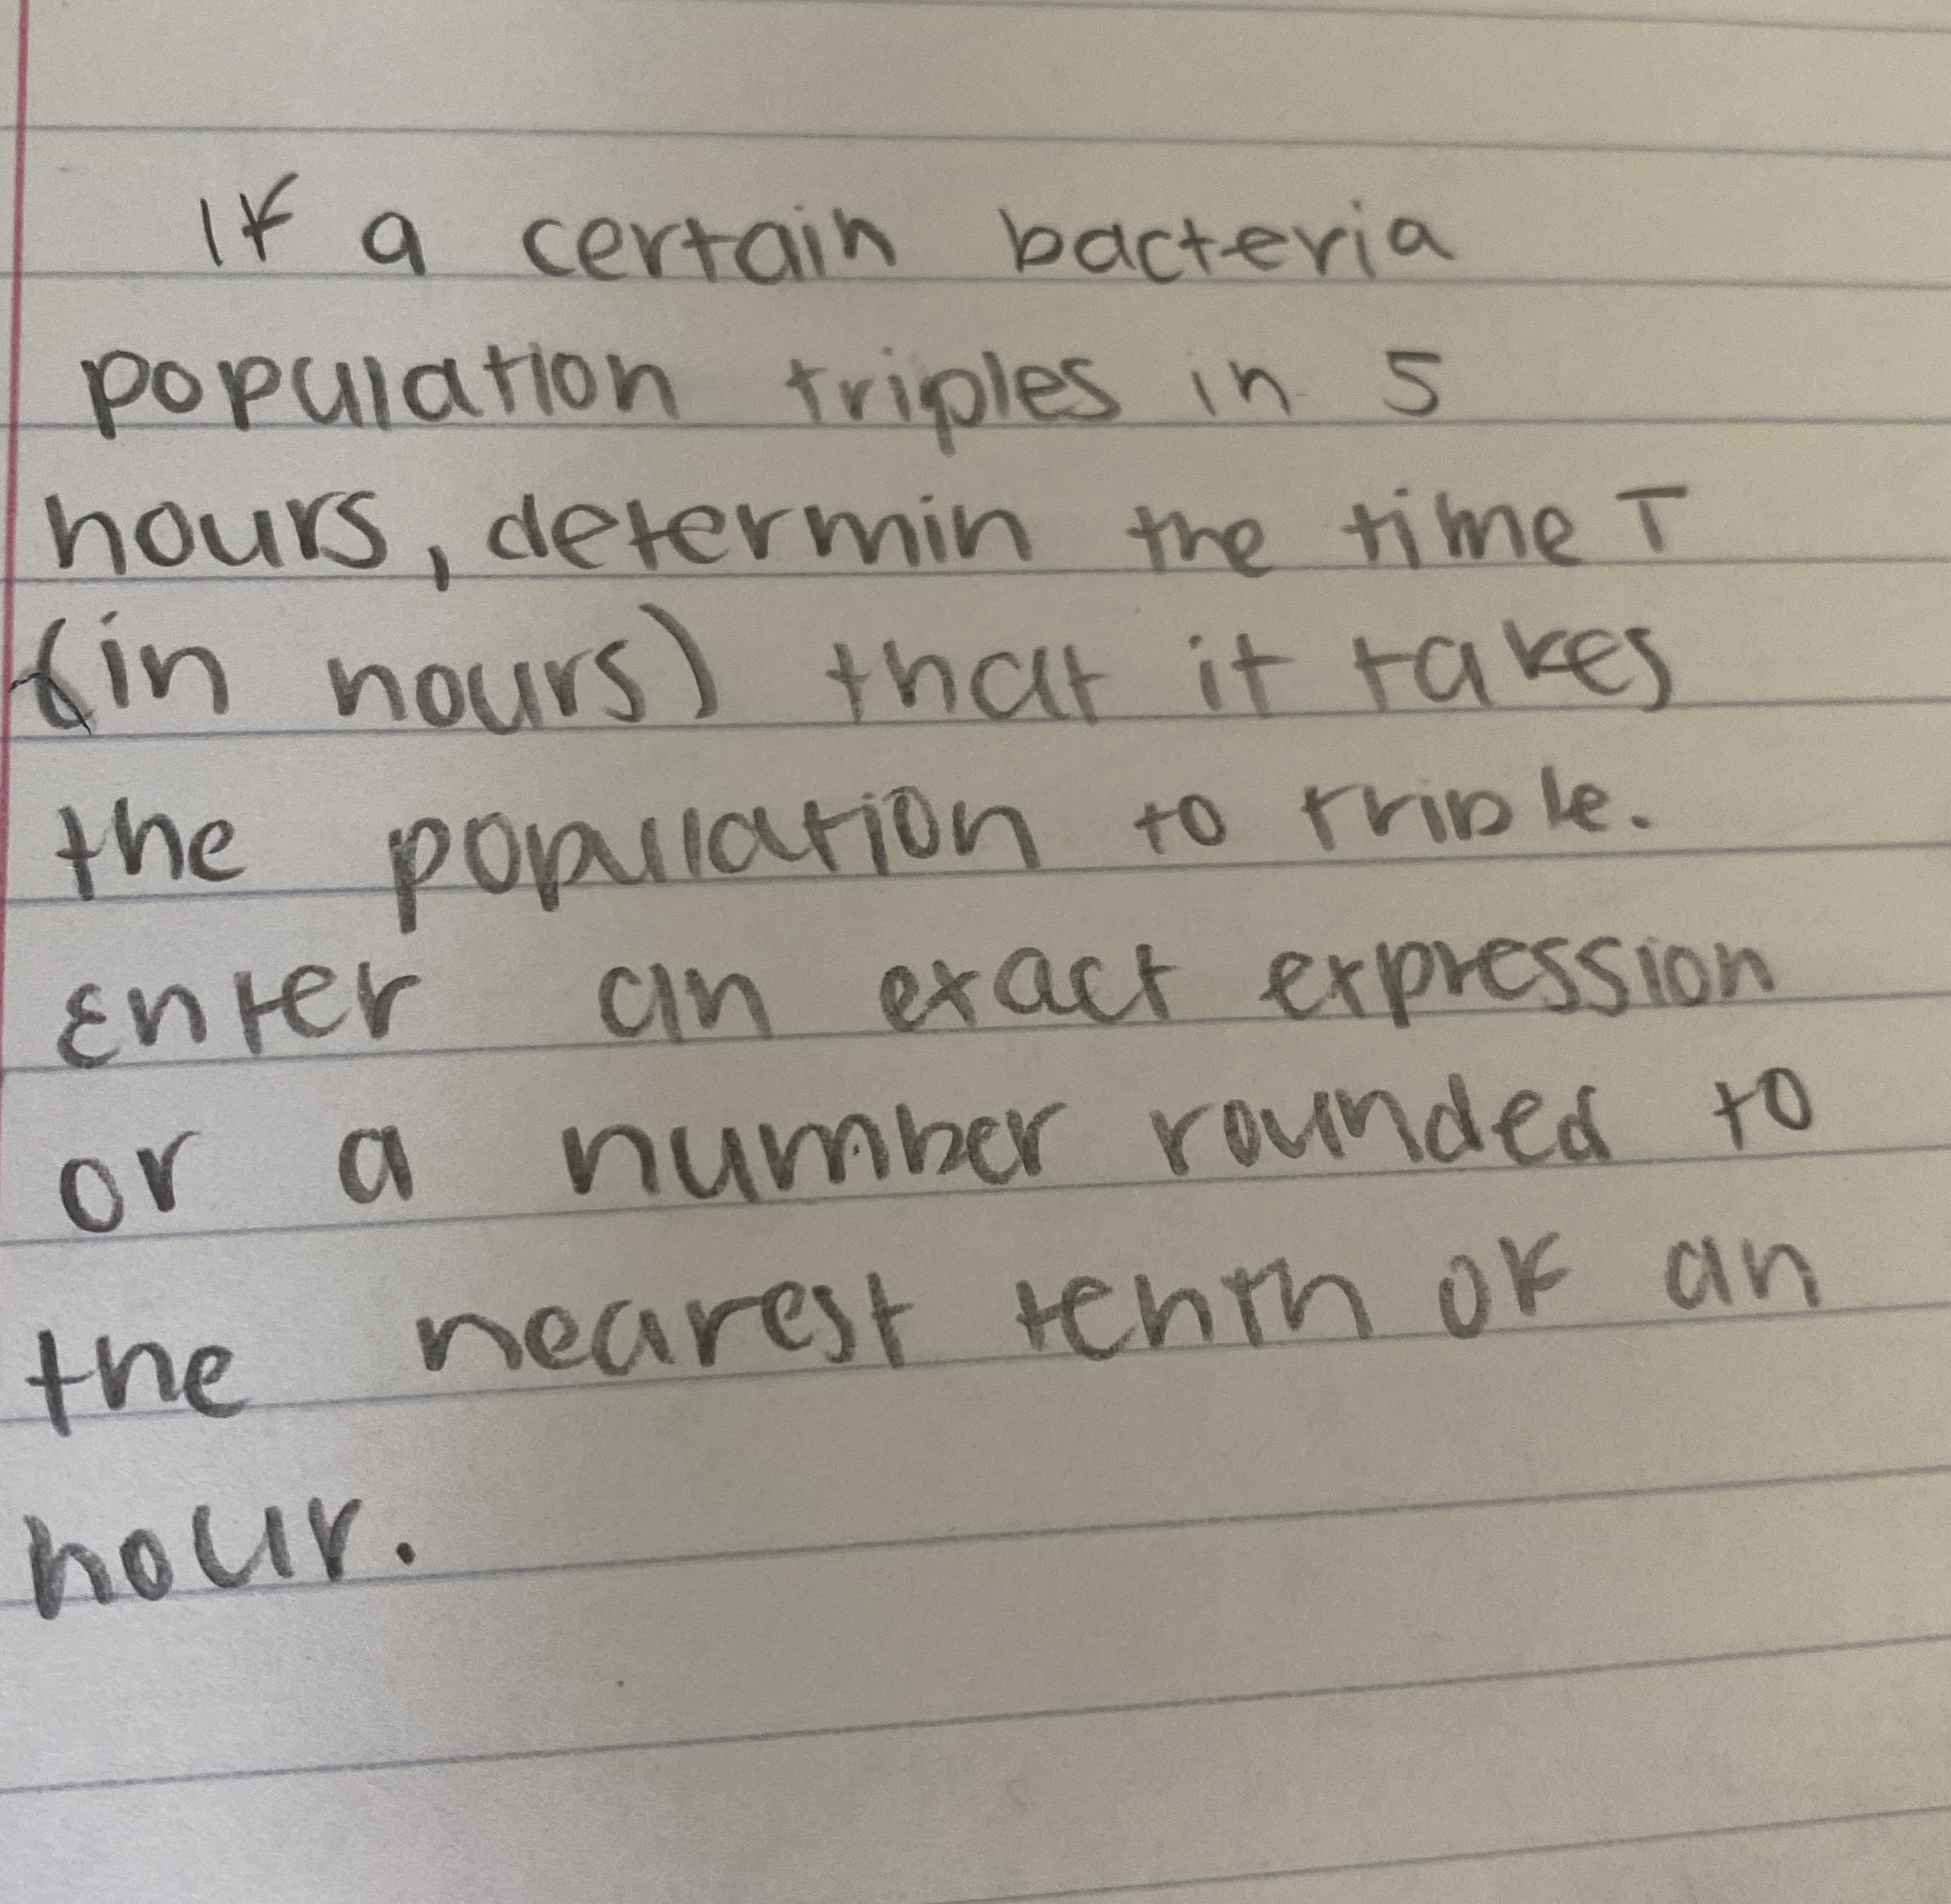 If a certain bacteria
population triples in 5
hours, determin the time T
(in hours) that it takes
the population to triple.
Enter an exact expression
or a number rounded to
the nearest tenth of an
hour.